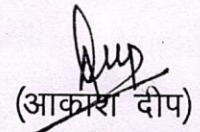 (आकाश दीप)